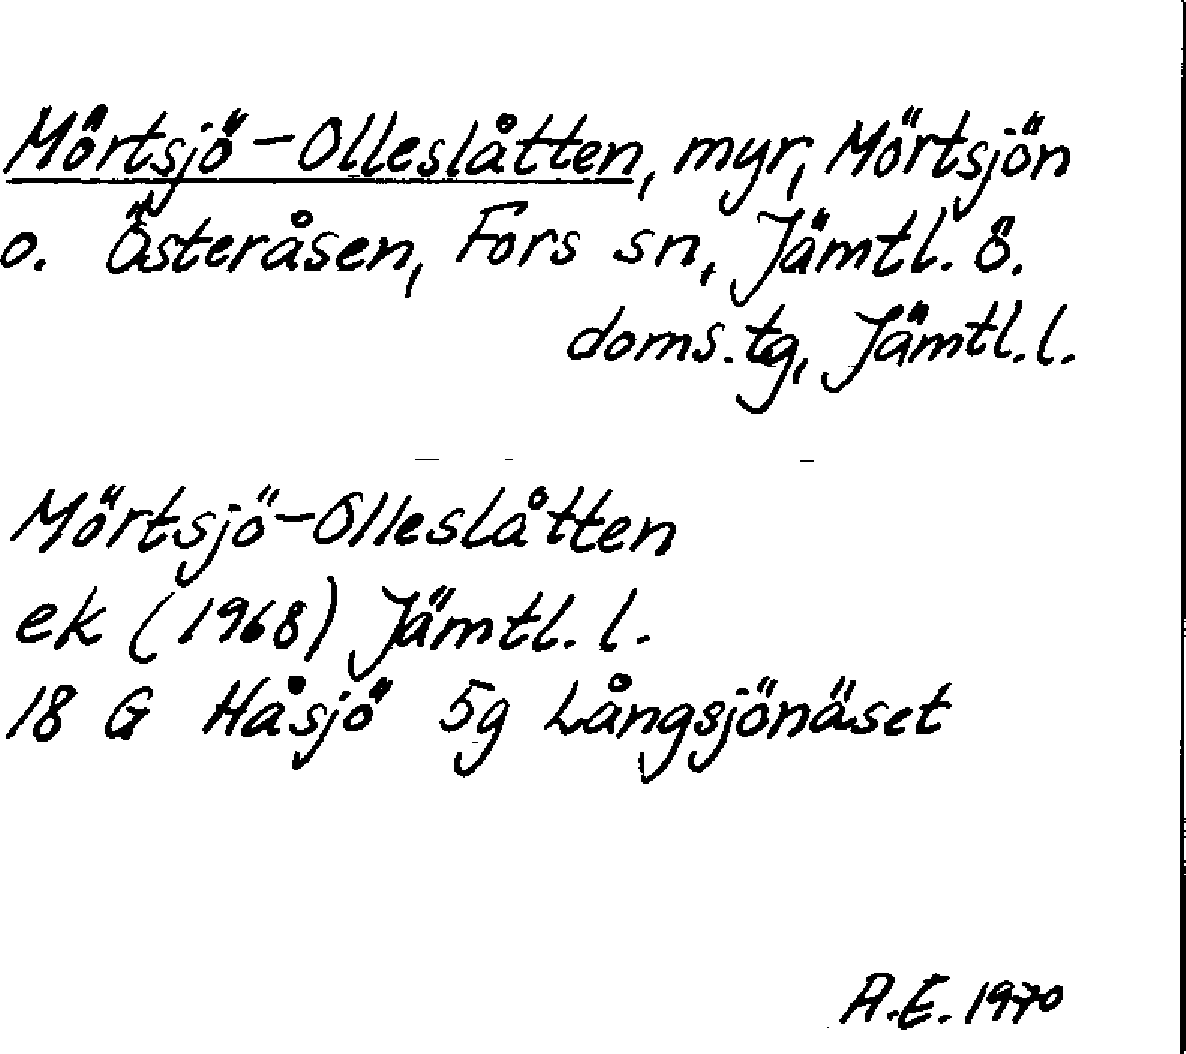 Mörtsjö-Olleslåtten, myr, Mörtsjön
o. Österåsen, Fors sn, Jämtl. ö.
doms.tg, Jämtl. l.
Mörtsjö-Olleslåtten
ek (1968) Jämtl. l.
18 G Håsjö 5g Långsjönäset
A.E. 1970